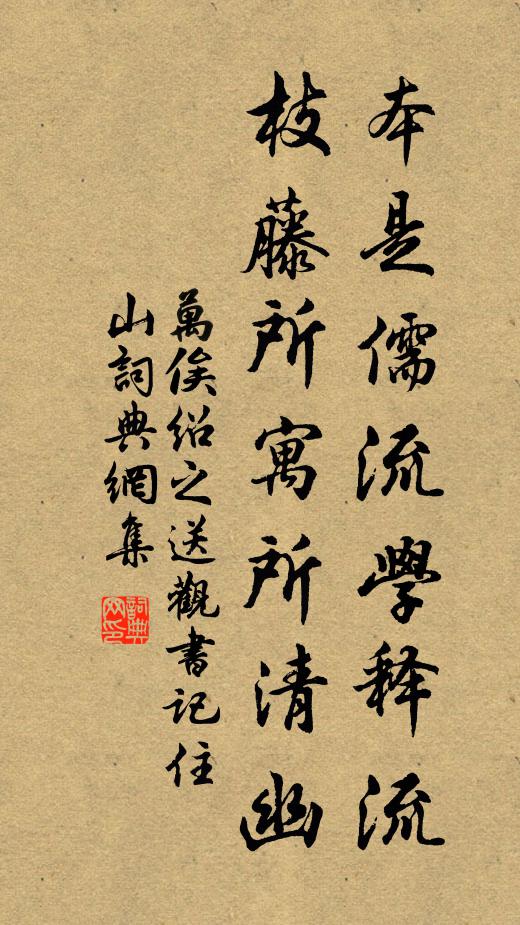 本是儒流學释流
枝藤所寓所清幽
萬俟绍之送觀書記住
山詞典網集
詞典网印